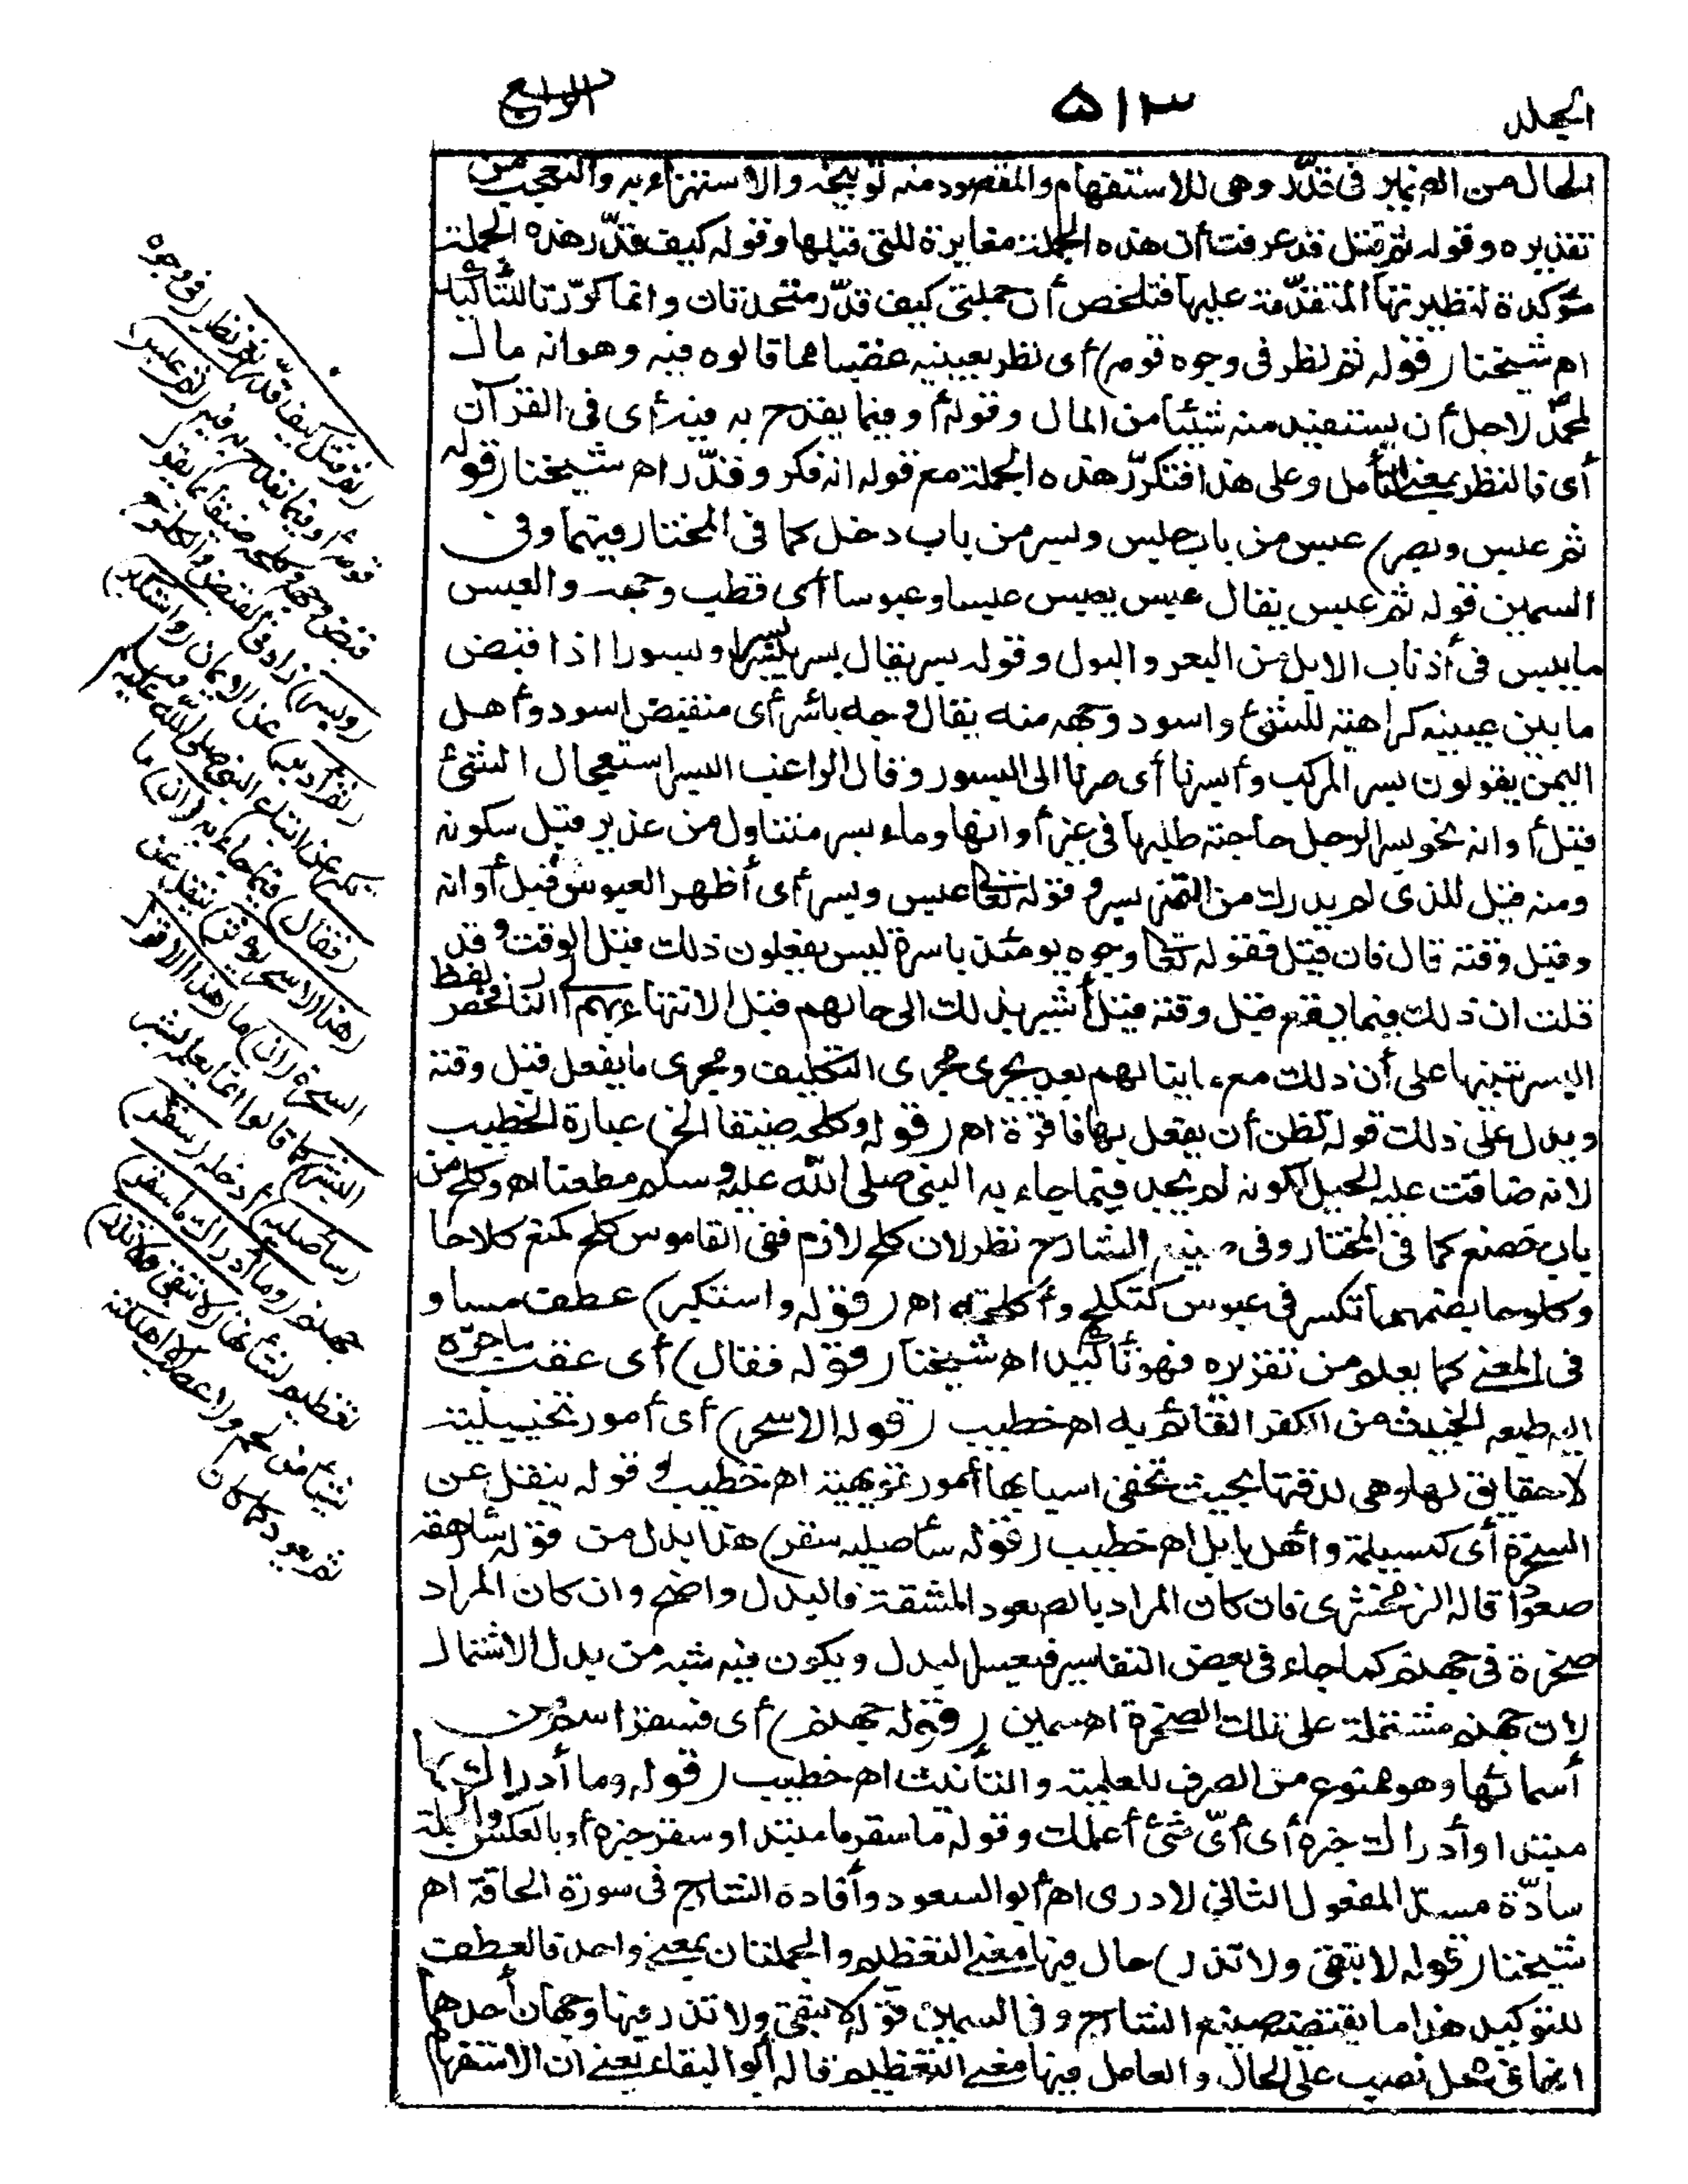 المجلد ٥١٣ الرابع
الحال من الضمير فى قدّر وهى للاستفهام والمقصود منه توبيخه والاستهزاء به والتعجيب من
تقديره وقوله ثم قتل قد عرفت أن هذه الجملة مغايرة للتى قبلها وقوله كيف قدّر هذه الجملة
مؤكدة لنظيرتها المتقدّمة عليها فتلخص أن جملتى كيف قدّر متحدتان وانما كرّرتا للتأكيد
اه شيخنا (قوله ثم نظر فى وجوه قومه) أى نظر بعينيه غضبا مما قالوه فيه وهو انه مال
لمحمّد لاجل أن يستفيد منه شيئا من المال وقوله أو فيما يقدح به فيه أى فى القرآن
أى فالنظر بمعنى التأمل وعلى هذا فتكرّر هذه الجملة مع قوله انه فكر وقدّر اه شيخنا (قوله
ثم عبس وبسر) عبس من باب جلس وبسر من باب دخل كما فى المختار فيهما وفى
السمين قوله ثم عبس يقال عبس يعبس عبسا وعبوسا أى قطب وجهه والعبس
ما يبس فى أذناب الابل من البعر والبول وقوله بسر يقال بسر يبسر بسرا وبسورا اذا قبض
ما بين عينيه كراهته للشئ واسود وجهه منه يقال وجه باسر أى منقبض اسود وأهل
اليمن يقولون بسر المركب وأبسرنا أى صرنا الى البسور وقال الراغب البسر استعجال الشئ
قبل أوانه نحو بسر الرجل حاجته طلبها فى غير أوانها وماء بسر متناول من غدير قبل سكونه
ومنه قيل للذى لم يدرك من التمر بسر وقوله تعالى عبس وبسر أى أظهر العبوس قبل أوانه
وقبل وقته قال فان قيل فقوله تعالى وجوه يومئذ باسرة ليس يفعلون ذلك قبل الوقت وقد
قلت ان ذلك فيما يقع قبل وقته قيل أشير بذلك الى حالهم قبل الانتهاء بهم الى النار فخص لفظ
البسر تنبيها على أن ذلك مع ما ينالهم من بعد يجرى مجرى التكليف ومجرى ما يفعل قبل وقته
ويدل على ذلك قوله تظن أن يفعل بها فاقرة اه (قوله وكلحه ضيقا الخ) عبارة الخطيب
لانه ضاقت عليه الحيل لكونه لم يجد فيما جاء به النبى صلى الله عليه وسلم مطعنا اه وكلح من
باب خضع كما فى المختار وفى صنيع الشارح نظر لان كلح لازم ففى القاموس كلح كمنع كلاحا
وكلوحا بضمهما تكسر فى عبوس كتكلح وأكلح اه (قوله واستكبر) عطف مساو
فى المعنى كما يعلم من تقريره فهو تأكيد اه شيخنا (قوله فقال) أى عقب ما جرّه
اليه طبعه الخبيث من الكفر القائم به اه خطيب (قوله الا سحر) أى أمور تخييلية
لا حقائق لها وهى لدقتها بحيث تخفى اسبابها أمور تمويهية اه خطيب وقوله ينقل عن
السحرة أى كمسيلمة وأهل بابل اه خطيب (قوله سأصليه سقر) هذا بدل من قوله سأرهقه
صعودا قاله الزمخشرى فان كان المراد بالصعود المشقة فالبدل واضح وان كان المراد
صخرة فى جهنم كما جاء فى بعض التفاسير فيعسر البدل ويكون فيه شبه من بدل الاشتمال
لان جهنم مشتملة على تلك الصخرة اه سمين (قوله جهنم) أى فسقر اسم من
أسمائها وهو ممنوع من الصرف للعلمية والتأنيث اه خطيب (قوله وما أدراك) ما
مبتدا وأدراك خبره أى أىّ شئ أعلمك وقوله ما سقر ما مبتدا وسقر خبره أو بالعكس والجملة
سادّة مسدّ المفعول الثانى لادرى اه أبو السعود وأفاده الشارح فى سورة الحاقة اه
شيخنا (قوله لا تبقى ولا تذر) حال فيها معنى التعظيم والجملتان بمعنى واحد فالعطف
للتوكيد هذا ما يقتضيه صنيع الشارح وفى السمين قوله لا تبقى ولا تذر فيها وجهان أحدهما
انها فى محل نصب على الحال والعامل فيها معنى التعظيم قاله أبو البقاء يعنى ان الاستفهام
(ثم قتل كيف قدّر ثم نظر) فى وجوه
قومه أو فيما يقدح به فيه (ثم عبس)
قبض وجهه وكلحه ضيقا بما يقول
(وبسر) زاد فى القبض والكلوح
(ثم أدبر) عن الايمان (واستكبر)
تكبر عن اتباع النبى صلى الله عليه وسلم
(فقال) فيما جاء به (ان) ما
(هذا الا سحر يؤثر) ينقل عن
السحرة (ان) ما (هذا الا قول
البشر) كما قالوا انما يعلمه بشر
(سأصليه) أدخله (سقر)
جهنم (وما أدراك ما سقر)
تعظيم لشأنها (لا تبقى ولا تذر)
شيأ من لحم ولا عصب الا أهلكته
ثم يعود كما كان